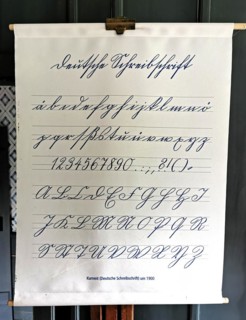 Deutsche Schreibschrift
a b c d e f g h i j k l m n o
p q r s ſ ß t u ü v w x y z
1234567890 .,;:?!().
A B C D E F G H I
J K L M N O P Q R
S T U V W X Y Z
Kurrent (Deutsche Schreibschrift) um 1900